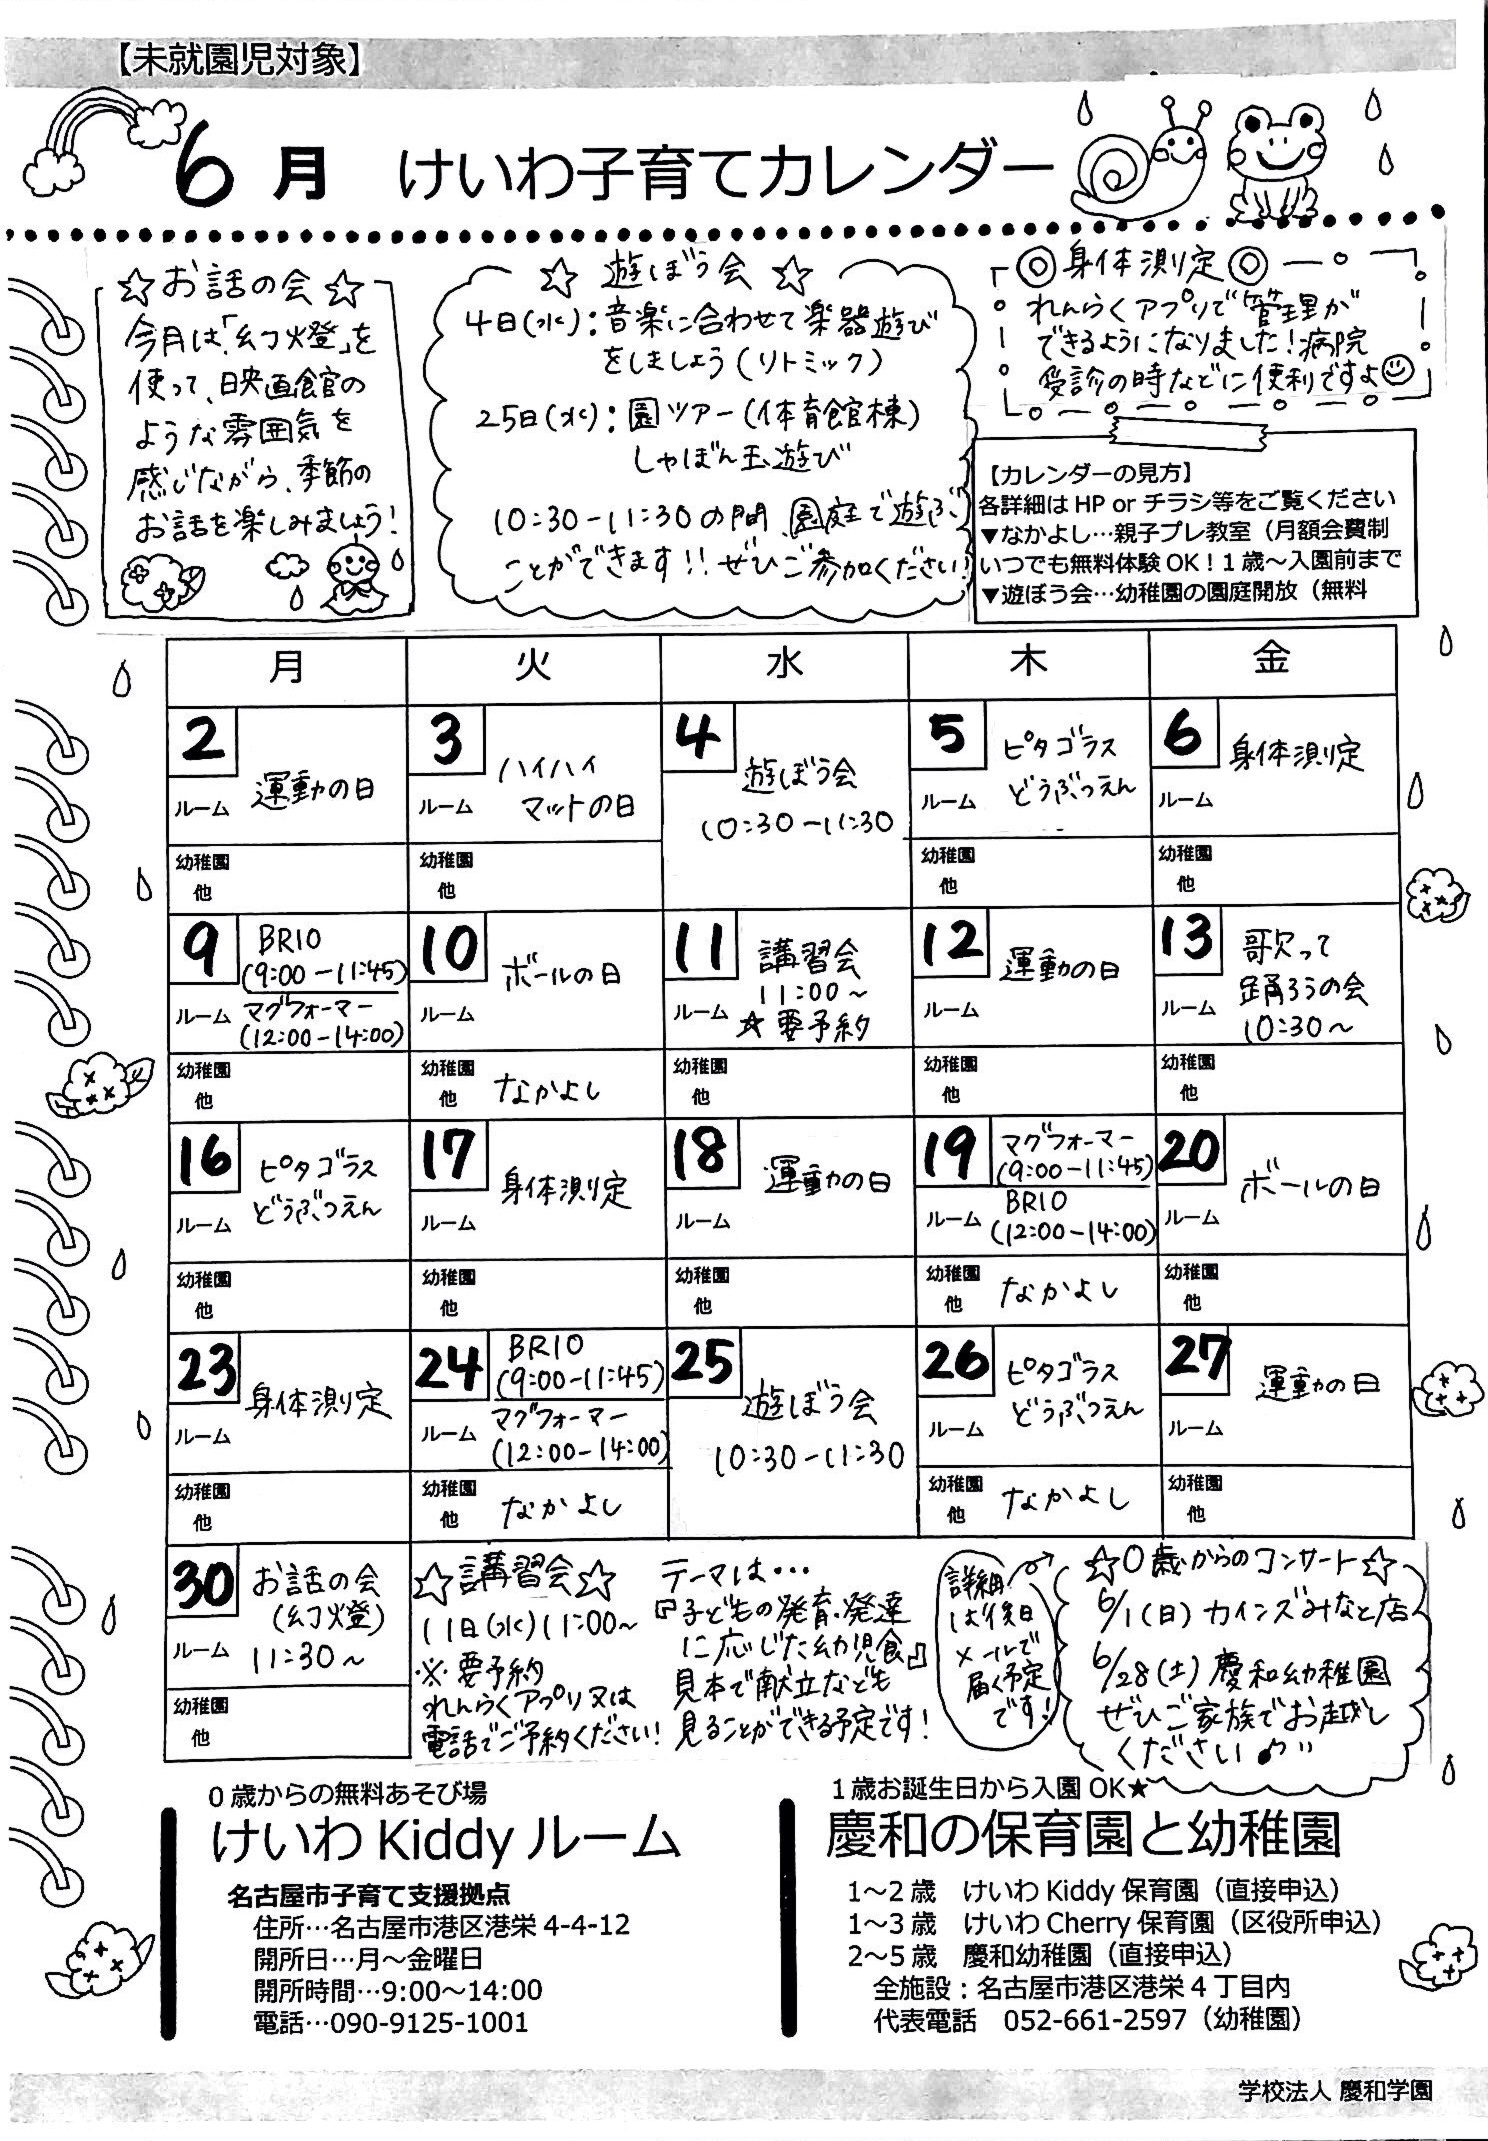 【未就園児対象】
6月 けいわ子育てカレンダー
☆お話の会☆
今月は「幻燈」を
使って、映画館の
ような雰囲気を
感じながら、季節の
お話を楽しみましょう!
☆ 遊ぼう会 ☆
4日(水):音楽に合わせて楽器遊び
をしましょう(リトミック)
25日(水):園ツアー(体育館棟)
しゃぼん玉遊び
10:30-11:30の間、園庭で遊ぶ
ことができます!!ぜひご参加ください!
◎身体測定◎
れんらくアプリで管理が
できるようになりました!病院
受診の時などに便利ですよ
【カレンダーの見方】
各詳細は HP or チラシ等をご覧ください
▼なかよし…親子プレ教室(月額会費制
いつでも無料体験 OK!1歳～入園前まで
▼遊ぼう会…幼稚園の園庭開放(無料
月 火 水 木 金
2
ルーム 運動の日
幼稚園
他
3
ルーム ハイハイ
マットの日
幼稚園
他
4
遊ぼう会
10:30-11:30
5
ルーム ピタゴラス
どうぶつえん
幼稚園
他
6
ルーム 身体測定
幼稚園
他
9
BRIO
(9:00-11:45)
ルーム マグフォーマー
(12:00-14:00)
幼稚園
他
10
ルーム ボールの日
幼稚園
他 なかよし
11
講習会
11:00~
ルーム ★要予約
幼稚園
他
12
ルーム 運動の日
幼稚園
他
13
歌って
踊ろうの会
ルーム 10:30~
幼稚園
他
16
ピタゴラス
どうぶつえん
ルーム
幼稚園
他
17
身体測定
ルーム
幼稚園
他
18
運動の日
ルーム
幼稚園
他
19
マグフォーマー
(9:00-11:45)
ルーム BRIO
(12:00-14:00)
幼稚園
他 なかよし
20
ボールの日
ルーム
幼稚園
他
23
身体測定
ルーム
幼稚園
他
24
BRIO
(9:00-11:45)
ルーム マグフォーマー
(12:00-14:00)
幼稚園
他 なかよし
25
遊ぼう会
10:30-11:30
26
ピタゴラス
どうぶつえん
ルーム
幼稚園
他 なかよし
27
運動の日
ルーム
幼稚園
他
30
お話の会
(幻燈)
ルーム 11:30~
幼稚園
他
☆講習会☆
11日(水)11:00~
※要予約
れんらくアプリ又は
電話でご予約ください!
テーマは…
『子どもの発育・発達
に応じた幼児食』
見本で献立なども
見ることができる予定です!
詳細
は後日
メールで
届く予定
です!
☆0歳からのコンサート☆
6/1(日)カインズみなと店
6/28(土)慶和幼稚園
ぜひご家族でお越し
ください♪
0歳からの無料あそび場
けいわ Kiddy ルーム
名古屋市子育て支援拠点
住所…名古屋市港区港栄 4-4-12
開所日…月～金曜日
開所時間…9:00～14:00
電話…090-9125-1001
1歳お誕生日から入園 OK★
慶和の保育園と幼稚園
1～2歳 けいわ Kiddy 保育園(直接申込)
1～3歳 けいわ Cherry 保育園(区役所申込)
2～5歳 慶和幼稚園(直接申込)
全施設：名古屋市港区港栄4丁目内
代表電話 052-661-2597(幼稚園)
学校法人 慶和学園